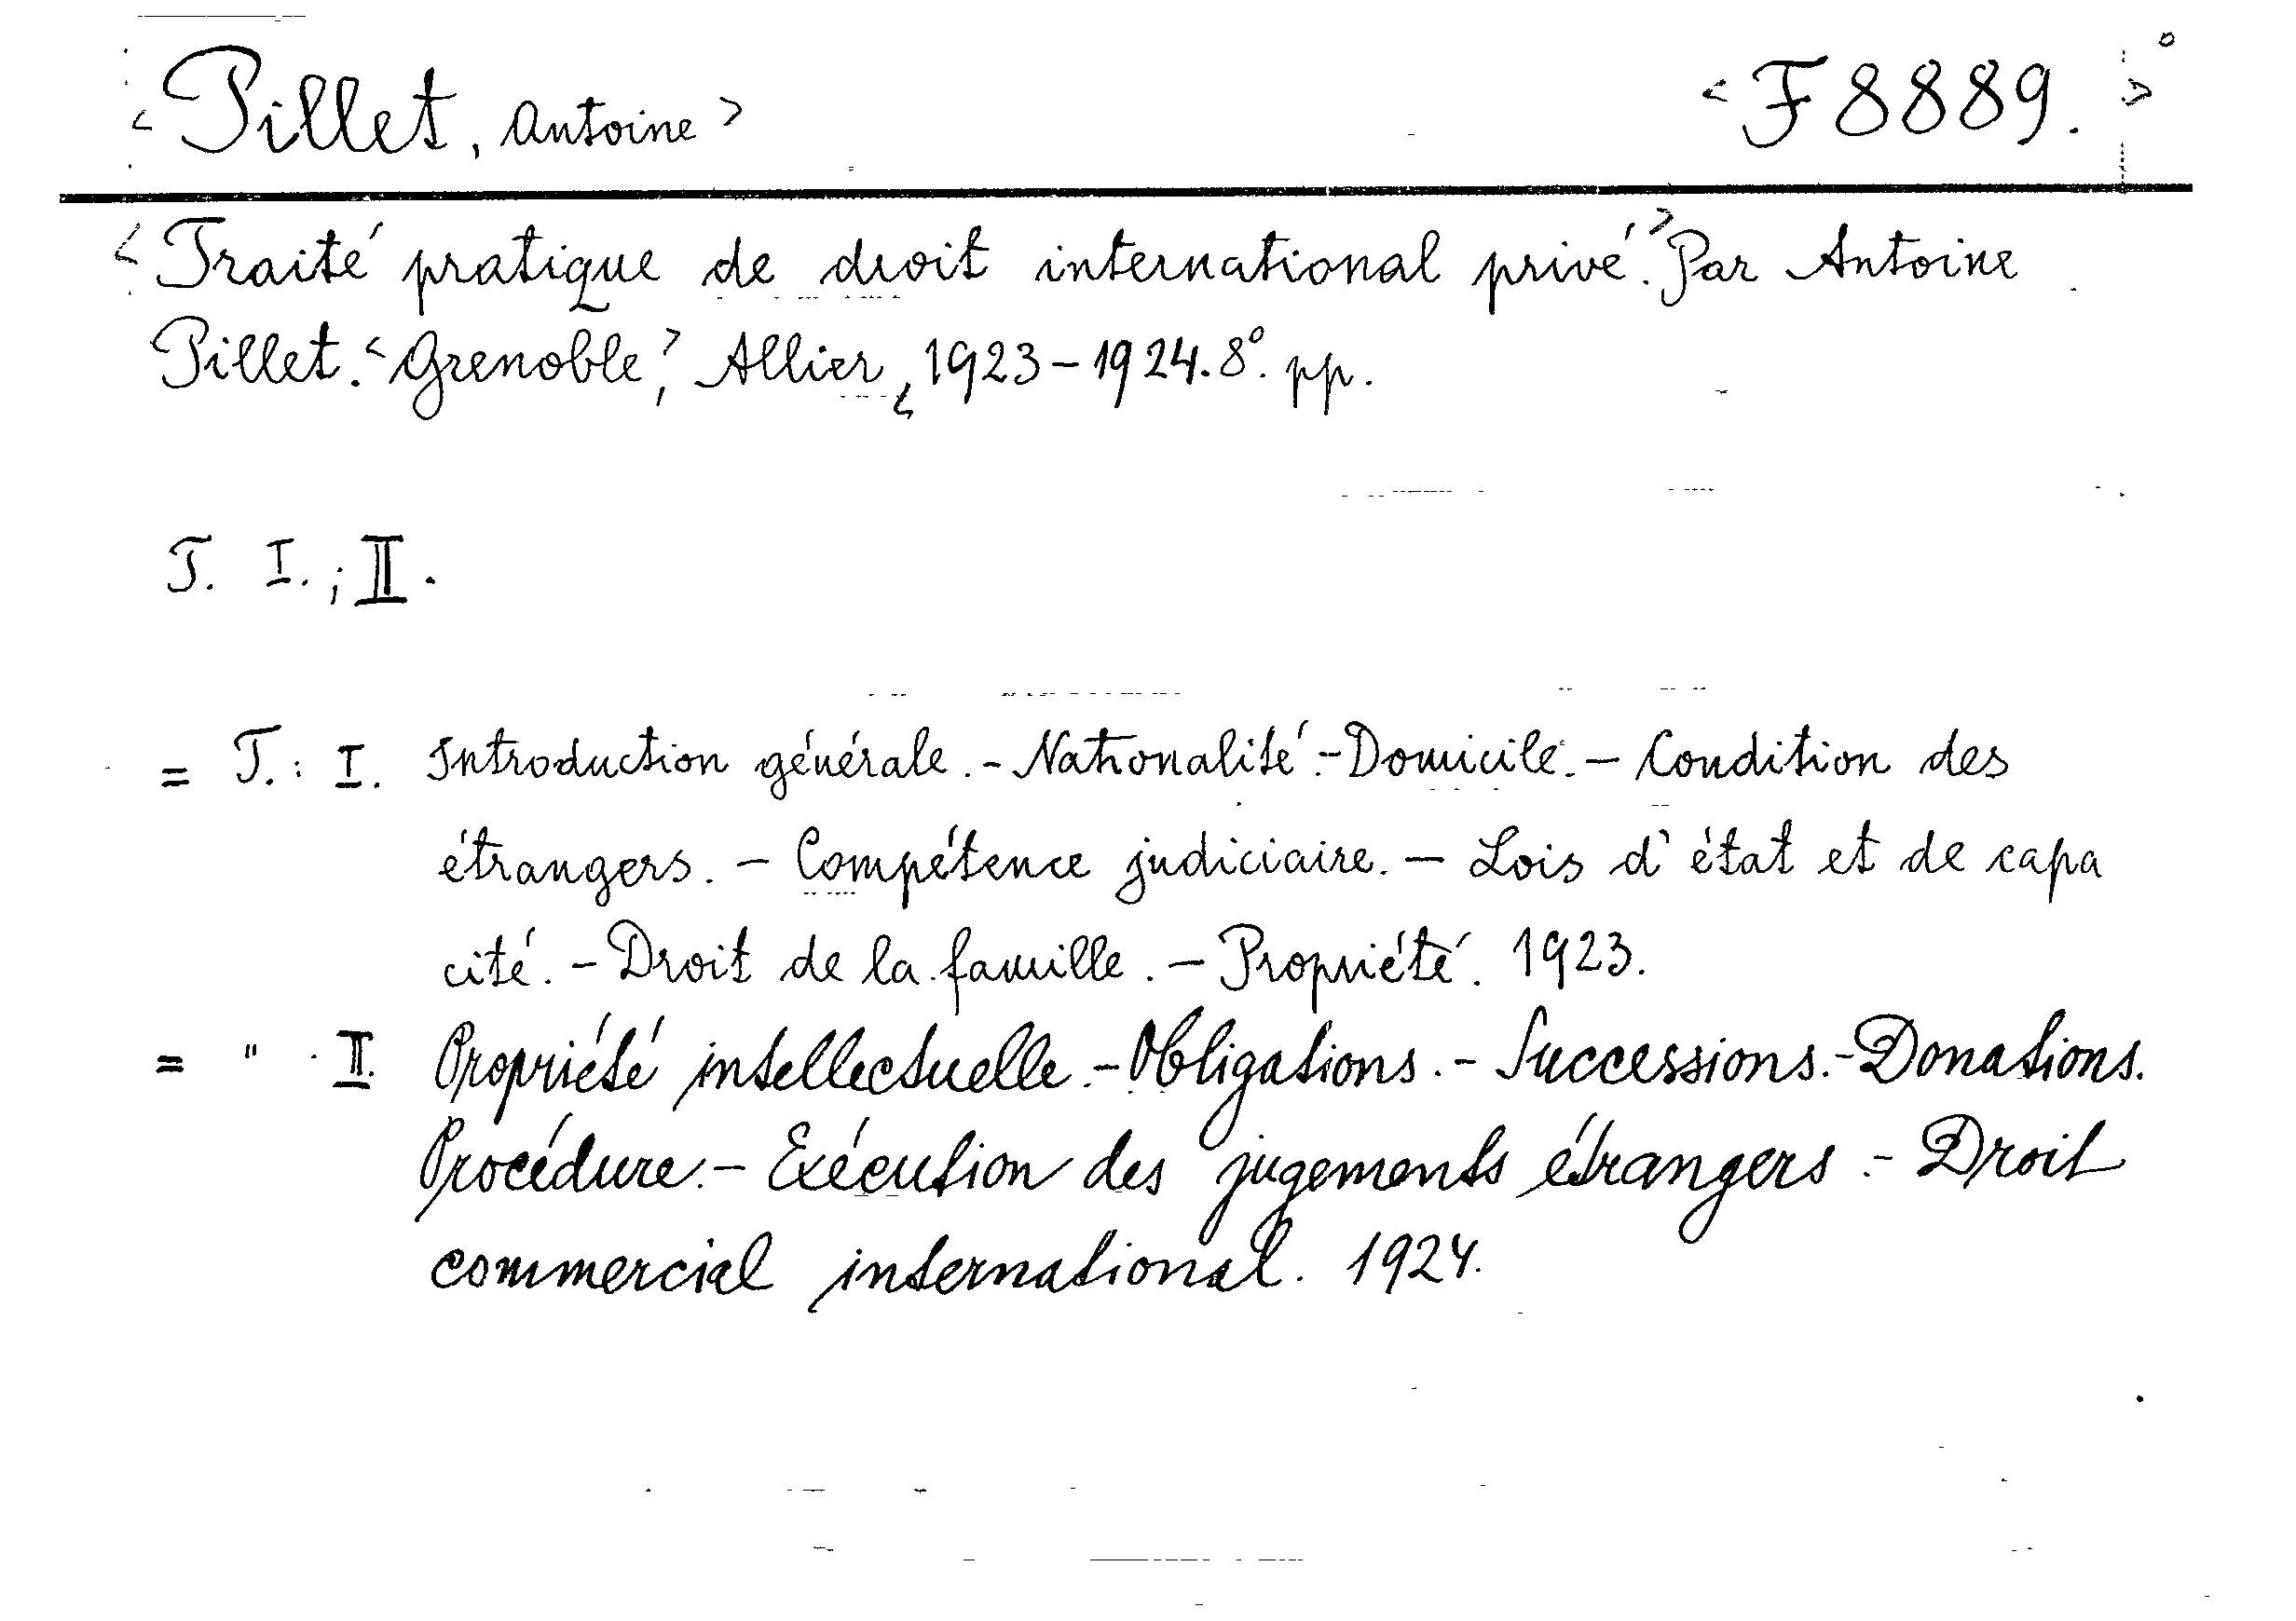 <Pillet, Antoine> <F 8889.>
<Traité pratique de droit international privé.> Par Antoine
Pillet. <Grenoble,> Allier, <1923-1924. 8°. pp.
T. I.; II.
= T.: I. Introduction générale. - Nationalité. - Domicile. - Condition des
étrangers. - Compétence judiciaire. - Lois d'état et de capa
cité. - Droit de la famille. - Propriété. 1923.
= " II. Propriété intellectuelle. - Obligations. - Successions. - Donations.
Procédure. - Exécution des jugements étrangers. - Droit
commercial international. 1924.